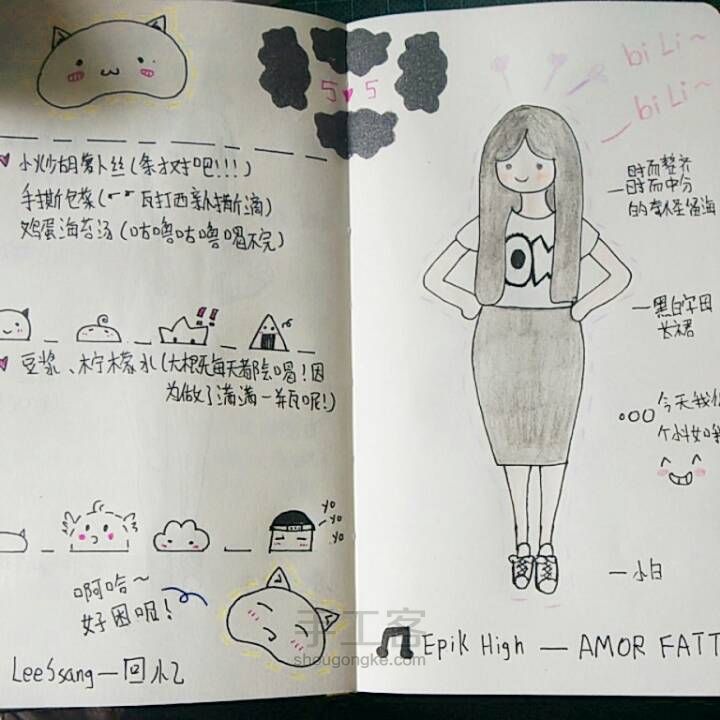 5 5
小炒胡萝卜丝(条才对吧!!!)
手撕包菜( 瓦打西亲撕滴)
鸡蛋海苔汤(咕噜咕噜喝不完)
!!
豆浆、柠檬水(大概死每天都会喝!因
为做了满满一并瓦呢!)
yo
yo
yo
啊哈~
好困呢!
LeeSsang—回忆
bili~
bili~
时而整齐
—时而中分
—黑白字母
长裙
今天我
—小白
Epik High — AMOR FATT
手工客
shougongke.com